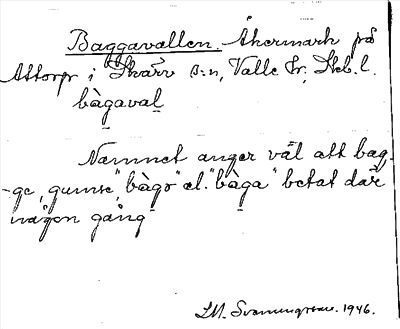 Baggavallen. Åkermark på
Attorp i Skärv s:n, Valle hr, Skb. l.
bàgaval
Namnet anger väl att bag-
ge, gumse "bàgo" el. "bàga" betat där
någon gång
1946.